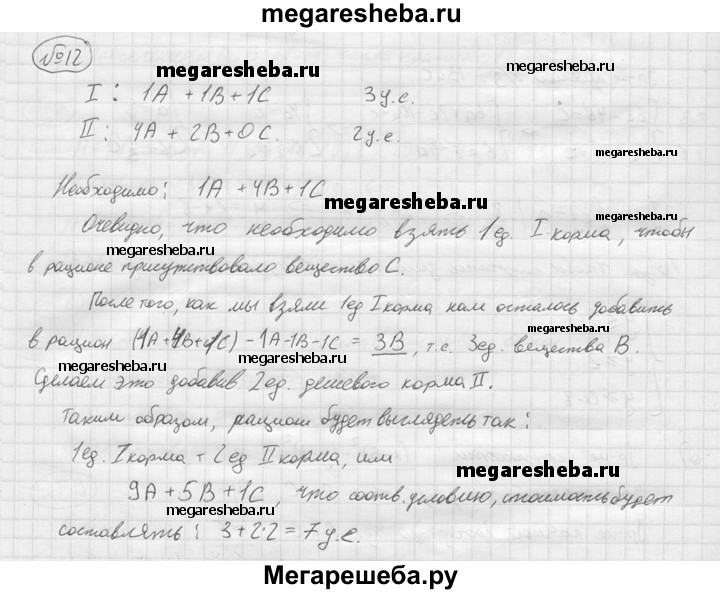 megaresheba.ru
№12
megaresheba.ru
I: 1A + 1B + 1C 3 у.е.
megaresheba.ru
II: 4A + 2B + 0C. 2 у.е.
megaresheba.ru
Необходимо: 1A + 4B + 1C
megaresheba.ru
megaresheba.ru
Очевидно, что необходимо взять 1ед. I корма, чтобы
megaresheba.ru
в рационе присутствовало вещество C.
После того, как мы взяли 1ед I корма нам осталось добавить
megaresheba.ru
в рацион (1A+4B+1C) - 1A-1B-1C = 3B, т.е. 3ед. вещества B.
megaresheba.ru
Сделаем это добавив 2ед. дешевого корма II.
Таким образом, рацион будет выглядеть так:
1ед. I корма + 2ед II корма, или
megaresheba.ru
9A + 5B + 1C, что соотв. условию, стоимость будет
megaresheba.ru
составлять: 3+2·2=7 у.е.
Мегарешеба.ру